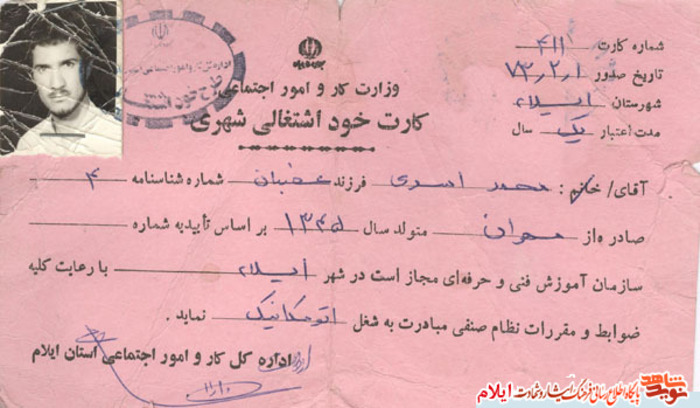 شماره کارت ۴۱۱
تاریخ صدور ۷۳,۲,۱
شهرستان ایلام
مدت اعتبار یک سال
وزارت کار و امور اجتماعی
کارت خود اشتغالی شهری
آقای/ خانم : محمد اسدی فرزند شماره شناسنامه ۴
صادره از مهران متولد سال ۱۳۴۵ بر اساس تأییدیه شماره
سازمان آموزش فنی و حرفه‌ای مجاز است در شهر ایلام با رعایت کلیه
ضوابط و مقررات نظام صنفی مبادرت به شغل اتومکانیک نماید .
اداره کل کار و امور اجتماعی استان ایلام
نوید شاهد
پایگاه اطلاع رسانی فرهنگ ایثار و شهادت ایلام